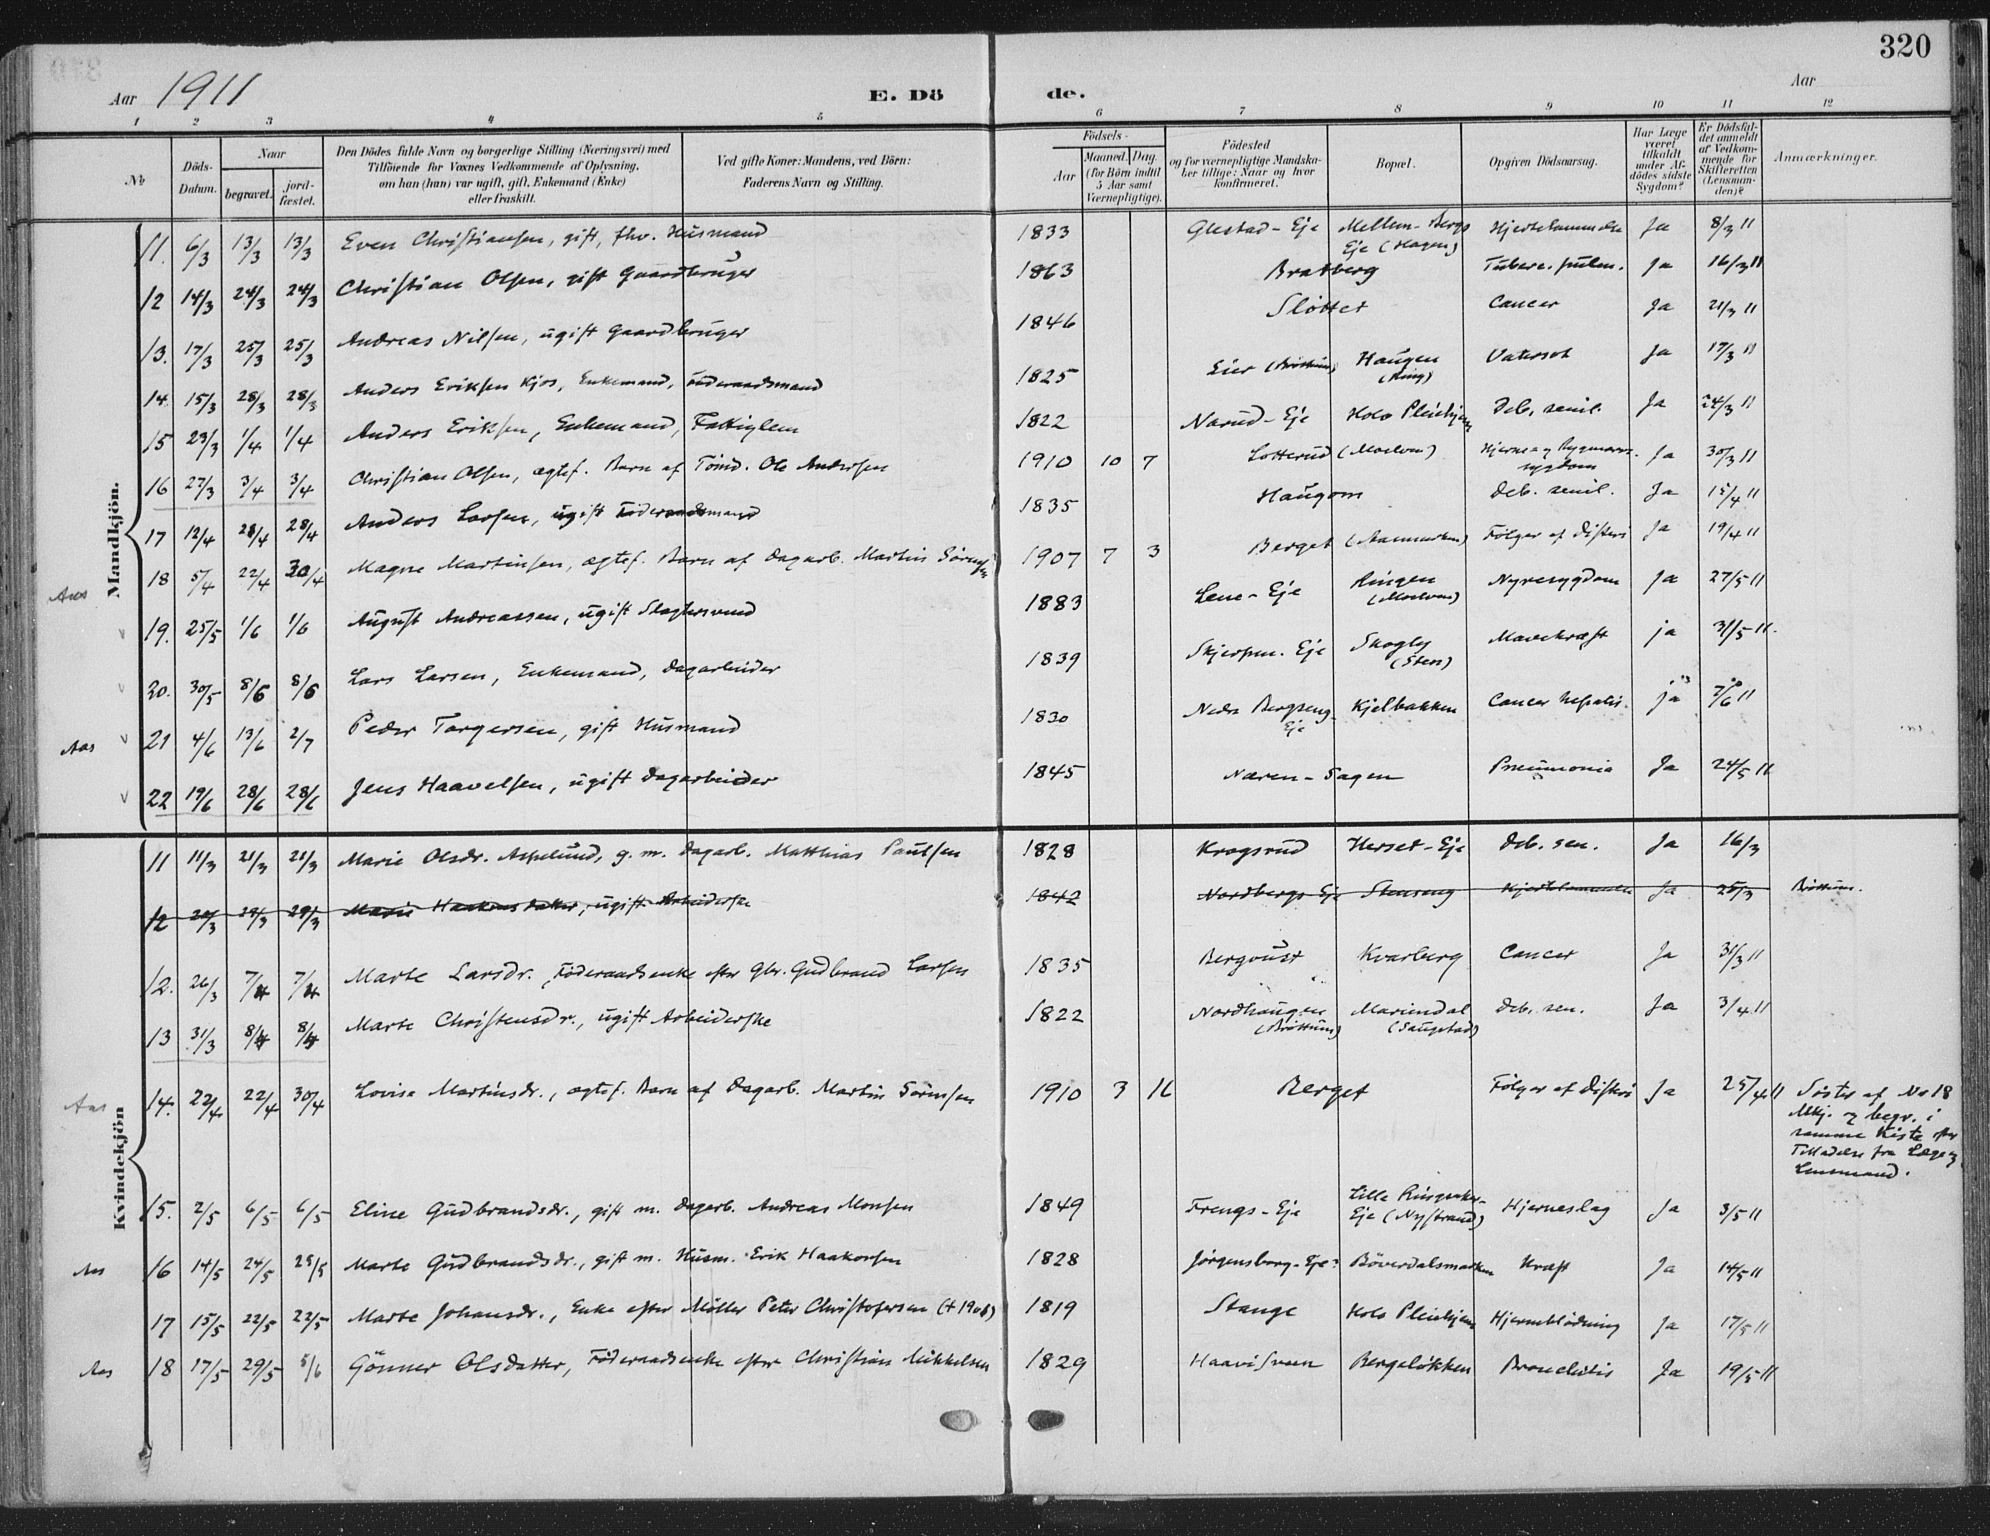 320
Aar 1911
E. Dö de.
Aar
1 2 3 4 5 6 7 8 9 10 11 12
No
Döds-Datum.
Naar
begravet.
jord-fæstet.
Den Dödes fulde Navn og borgerlige Stilling (Næringsvei) med
Tilföiende for Voxnes Vedkommende af Oplysning,
om han (hun) var ugift, gift, Enkemand (Enke)
eller fraskilt.
Ved gifte Koner: Mandens, ved Börn:
Faderens Navn og Stilling.
Födsels-
Aar
Maaned. Dag.
(for Börn indtil
5 Aar samt
Værnepligtige).
Födested
og for værnepligtige Mandska-
ber tillige: Naar og hvor
konfirmeret.
Bopæl.
Opgiven Dödsaarsag.
Har Læge
været
tilkaldt
under Af-
dödes sidste
Sygdom?
Er Dödsfal-
det anmeldt
af Vedkom-
mende for
Skifteretten
(Lensman-
den)?
Anmærkninger.
Mandkjön.
11. 6/3 13/3 13/3 Even Christiansen, gift, fhv. Husmand 1833 Glestad-Eje Mellem-Bergs Eje (Hagen) Hjertelammelse Ja 8/3 11
12 14/3 24/3 24/3 Christian Olsen, gift Gaardbruger 1863 Bratberg Luberc. pulm. Ja 16/3 11
13. 17/3 25/3 25/3 Andreas Nilsen, ugift Gaardbruger 1846 Slottet Cancer Ja 21/3 11
14 15/3 28/3 28/3 Anders Eriksen Kjos, Enkemand, Föderaadsmand 1825 Eier (Brøttum) Haugen (Ring) Vatersot Ja 17/3 11
15 23/3 1/4 1/4 Anders Eriksen, Enkemand, Fattiglem 1822 Narud-Eje Holo Pleiehjem Deb. senil. Ja 24/3 11
16 27/3 3/4 3/4 Christian Olsen, ægtef. Barn af Tömd. Ole Andersen 1910 10 7 Lotterud (Moelven) Hjerne- og Rygmarvs-sygdom Ja 30/3 11
17 12/4 28/4 28/4 Anders Larsen, ugift Föderaadsmand 1835 Haugom Deb. senil. Ja 15/4 11
Aas 18 5/4 22/4 30/4 Magne Martinsen, ægtef. Barn af Dagarb. Martin Sörensen 1907 7 3 Berget (Aasmarken) Fölger af Difteri Ja 19/4 11
19. 25/5 1/6 1/6 August Andreassen, ugift Slagtersvend 1883 Lene-Eje Ringen (Moelven) Nyresygdom Ja 27/5 11
20. 30/5 8/6 8/6 Lars Larsen, Enkemand, Dagarbeider 1839 Skjerpen-Eje Skogly (Sten) Mavekræft ja 31/5 11.
Aas 21 4/6 13/6 2/7 Peder Torgersen, gift Husmand 1830 Nedre Bergseng-Eje Kjelbakken Cancer hepatis. ja 7/6 11
22 19/6 28/6 28/6 Jens Haavelsen, ugift Dagarbeider 1845 Næren-Sagen Pneumonia Ja 24/5 11
Kvindekjön
11 11/3 21/3 21/3 Marie Olsdr. Aspelund, g. m. Dagarb. Matthias Paulsen 1828 Krogsrud Herset-Eje Deb. sen. Ja 16/3
12 20/3 29/3 29/3 Marie Haakensdatter, ugift Arbeiderske 1842 Nordbergs Eje Stenseng Hjertelammelse Ja 25/3 Brøttum.
12. 26/3 7/4 7/4 Marte Larsdr. Föderaadsenke efter Gbr. Gudbrand Larsen 1835 Bergoust Kvarberg Cancer Ja 31/3 11
13 31/3 8/4 8/4 Marte Christensdr., ugift Arbeiderske 1822 Nordhaugen (Brøttum) Mariendal (Saugstad) Deb. sen. Ja 3/4 11
Aas 14. 22/4 22/4 30/4 Lovise Martinsdr., ægtef. Barn af Dagarb. Martin Sörensen 1910 3 16 Berget Fölger af Difteri Ja 25/4 11 Söster af No 18
Mkj. og begr. i
samme Kiste efter
Tilladelse fra Læge og
Lensmand.
15. 2/5 6/5 6/5 Eline Gudbrandsdr., gift m. Dagarb. Andreas Monsen 1849 Frengs-Eje Lille Ringsaker-Eje (Nystrand) Hjerneslag Ja 3/5 11
Aas 16 14/5 24/5 25/5 Marte Gudbrandsdr., gift m. Husm. Erik Haakonsen 1828 Jörgensborg-Eje Böverdalsmarken Kræft Ja 14/5 11
17 15/5 22/5 22/5 Marte Johansdr., Enke efter Möller Peter Christofersen 1819 Stange Holo Pleiehjem Hjerneblödning Ja 17/5 11
Aas 18 17/5 29/5 5/6 Gönner Olsdatter, Föderaadsenke efter Christian Mikkelsen 1829 Haavisveen Bergelökken Bronchitis Ja 19/5 11